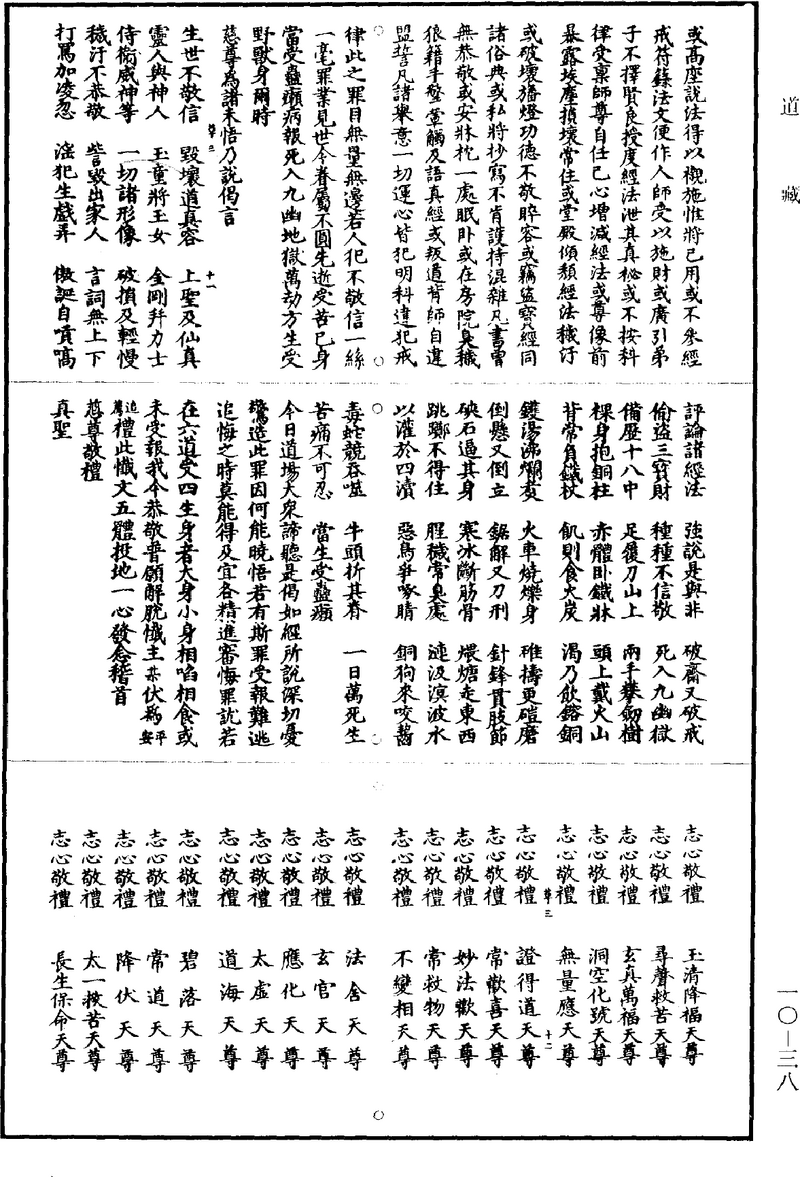 道藏
一〇—三八
或高座說法得以襯施惟將己用或不參經
戒符籙法文便作人師受以施財或廣引弟
子不擇賢良授度經法泄其真秘或不按科
律受稟師尊自任己心增減經法或尊像前
暴露埃塵損壞常住或堂殿傾頹經法穢汙
或破壞旛燈功德不敬睟容或竊盜寶經同
諸俗典或私將抄寫不肯護持混雜凡書曾
無恭敬或安牀枕一處眠臥或在房院臭穢
狼籍手墼葷觸及語真經或叛道背師自違
盟誓凡諸舉意一切運心皆犯明科違犯戒
律此之罪目無量無邊若人犯不敬信一絲
一毫罪業見世令眷屬不圓先逝受苦已身
當受蠱癩病報死入九幽地獄萬劫方生受
野獸身爾時
慈尊為諸未悟乃說偈言
生世不敬信　毀壞道真容　上聖及仙真
靈人與神人　玉童將玉女　金剛并力士
侍衛威神等　一切諸形像　破損及輕慢
穢汙不恭敬　訾毀出家人　言詞無上下
打罵加凌忽　淫犯生戲弄　傲誕自貢高
評論諸經法　強說是與非　破齋又破戒
偷盜三寶財　種種不信敬　死入九幽獄
備歷十八中　足履刀山上　兩手攀劒樹
裸身抱銅柱　赤體臥鐵牀　頭上戴火山
背常負鐵杖　飢則食火炭　渴乃飲鎔銅
鑊湯沸爛煑　火車燒爍身　碓擣更磑磨
倒懸又倒立　鋸解又刀刑　針鋒貫肢節
砆石逼其身　寒冰斷筋骨　煨煻走東西
跳躑不得住　腥穢常臭處　漣汲溟波水
以灌於四瀆　惡鳥爭啄睛　銅狗來咬齧
毒蛇競吞噬　牛頭折其脊　一日萬死生
苦痛不可忍　當生受蠱癩
今日道場大衆諦聽是偈如經所說深切憂
驚造此罪因何能曉悟若有斯罪受報難逃
追悔之時莫能得及宜各精進審悔罪訧若
在六道受四生身者大身小身相啗相食或
未受報我今恭敬普願解脫懺主某伏為平安
追薦禮此懺文五體投地一心發念稽首
慈尊敬禮
真聖
志心敬禮　玉清降福天尊
志心敬禮　尋聲救苦天尊
志心敬禮　玄真萬福天尊
志心敬禮　洞空化號天尊
志心敬禮　無量應天尊
志心敬禮　證得道天尊
志心敬禮　常歡喜天尊
志心敬禮　妙法歡天尊
志心敬禮　常救物天尊
志心敬禮　不變相天尊
志心敬禮　法舍天尊
志心敬禮　玄官天尊
志心敬禮　應化天尊
志心敬禮　太虛天尊
志心敬禮　道海天尊
志心敬禮　碧落天尊
志心敬禮　常道天尊
志心敬禮　降伏天尊
志心敬禮　太一救苦天尊
志心敬禮　長生保命天尊